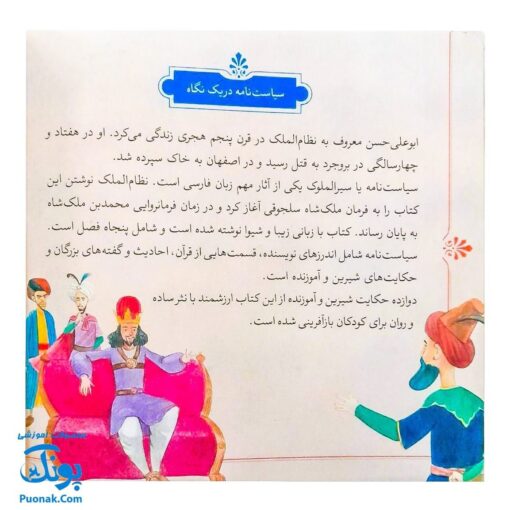 سیاست‌نامه در یک نگاه
ابوعلی‌حسن معروف به نظام‌الملک در قرن پنجم هجری زندگی می‌کرد. او در هفتاد و
چهارسالگی در بروجرد به قتل رسید و در اصفهان به خاک سپرده شد.
سیاست‌نامه یا سیرالملوک یکی از آثار مهم زبان فارسی است. نظام‌الملک نوشتن این
کتاب را به فرمان ملک‌شاه سلجوقی آغاز کرد و در زمان فرمانروایی محمدبن ملک‌شاه
به پایان رساند. کتاب با زبانی زیبا و شیوا نوشته شده است و شامل پنجاه فصل است.
سیاست‌نامه شامل اندرزهای نویسنده، قسمت‌هایی از قرآن، احادیث و گفته‌های بزرگان و
حکایت‌های شیرین و آموزنده است.
دوازده حکایت شیرین و آموزنده از این کتاب ارزشمند با نثر ساده
و روان برای کودکان بازآفرینی شده است.
محصولات آموزشی
پونک
Puonak.Com